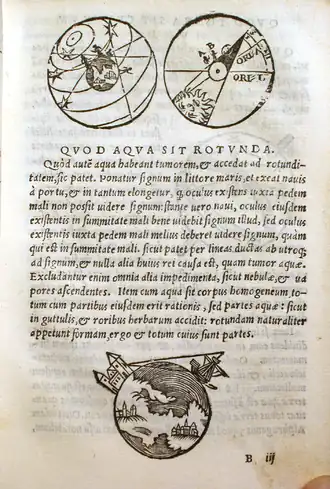 A
B
ORVA
ORIE.
QVOD AQVA SIT ROTVNDA.
Quòd autē aqua habeant tumorem, & accedat ad rotundi-
tatem, sic patet. Ponatur signum in littore maris, et exeat nauis
à portu, & in tantum elongetur, q oculus existens iuxta pedem
mali non possit uidere signum: stante uero naui, oculus eiusdem
existentis in summitate mali bene uidebit signum illud, sed oculus
existentis iuxta pedem mali melius deberet uidere signum, quàm
qui est in summitate mali. sicut patet per lineas ductas ab utroq;
ad signum, & nulla alia huius rei causa est, quam tumor aquæ.
Excludantur enim omnia alia impedimenta, sicut nebulæ, & ua
pores ascendentes. Item cum aqua sit corpus homogeneum, to-
tum cum partibus eiusdem erit rationis, sed partes aquæ: sicut
in guttulis, & roribus herbarum accidit: rotundam naturaliter
appetunt formam, ergo & totum cuius sunt partes.
B iij